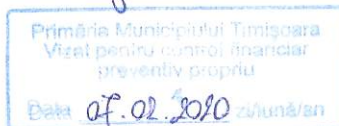 Primăria Municipiului Timișoara
Vizat pentru control financiar
preventiv propriu
Data 07.02.2020 zi/lună/an